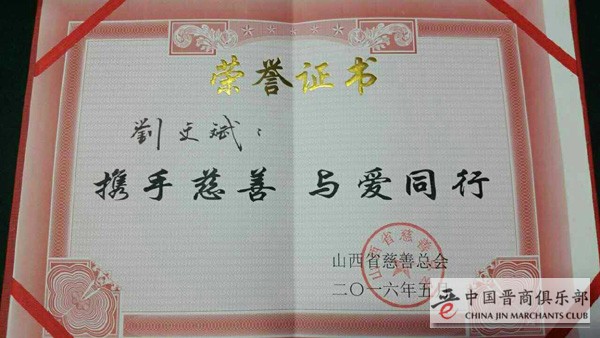 荣誉证书
劉文斌：
携手慈善 与爱同行
山西省慈善总会
二〇一六年五月
山西省慈善
中国晋商俱乐部
CHINA JIN MARCHANTS CLUB